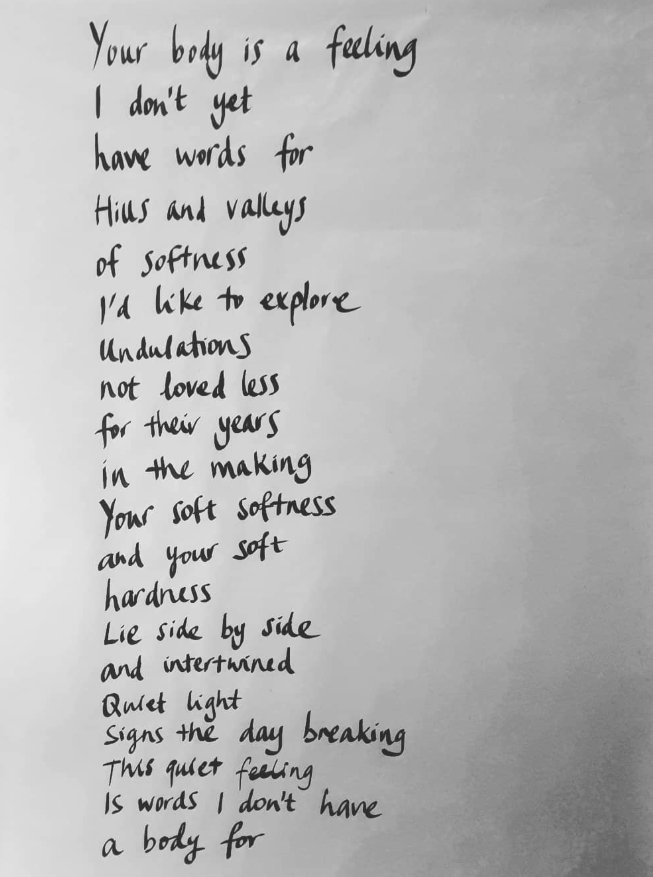 Your body is a feeling
I don't yet
have words for
Hills and valleys
of softness
I'd like to explore
Undulations
not loved less
for their years
in the making
Your soft softness
and your soft
hardness
Lie side by side
and intertwined
Quiet light
Signs the day breaking
This quiet feeling
Is words I don't have
a body for